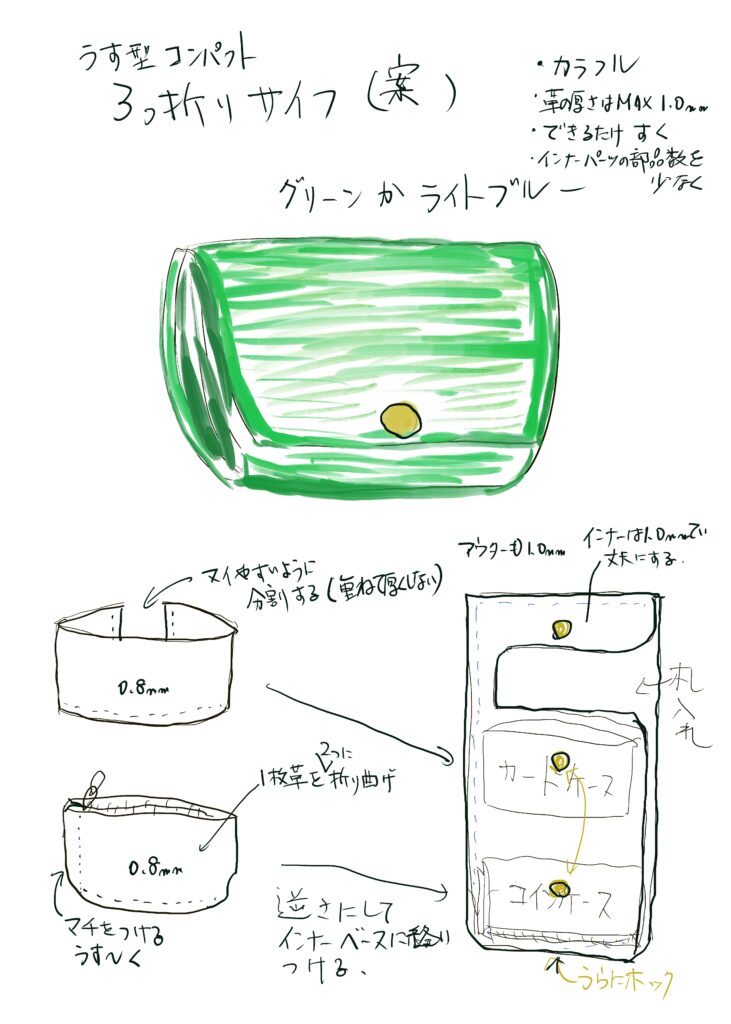 うす型コンパクト
3つ折りサイフ(案)
・カラフル
・革の厚さはMAX 1.0mm
・できるだけ すく
・インナーパーツの部品数を
少なく
グリーン か ライトブルー
ヌイやすいように
分割する(重ねて厚くしない)
0.8mm
アウターも1.0mm
インナーは1.0mmで
丈夫にする.
札入れ
カードケース
2つに
1枚革を折り曲げ
0.8mm
マチをつける
うす〜く
逆さにして
インナーベースに
つける.
コインケース
うらにホック